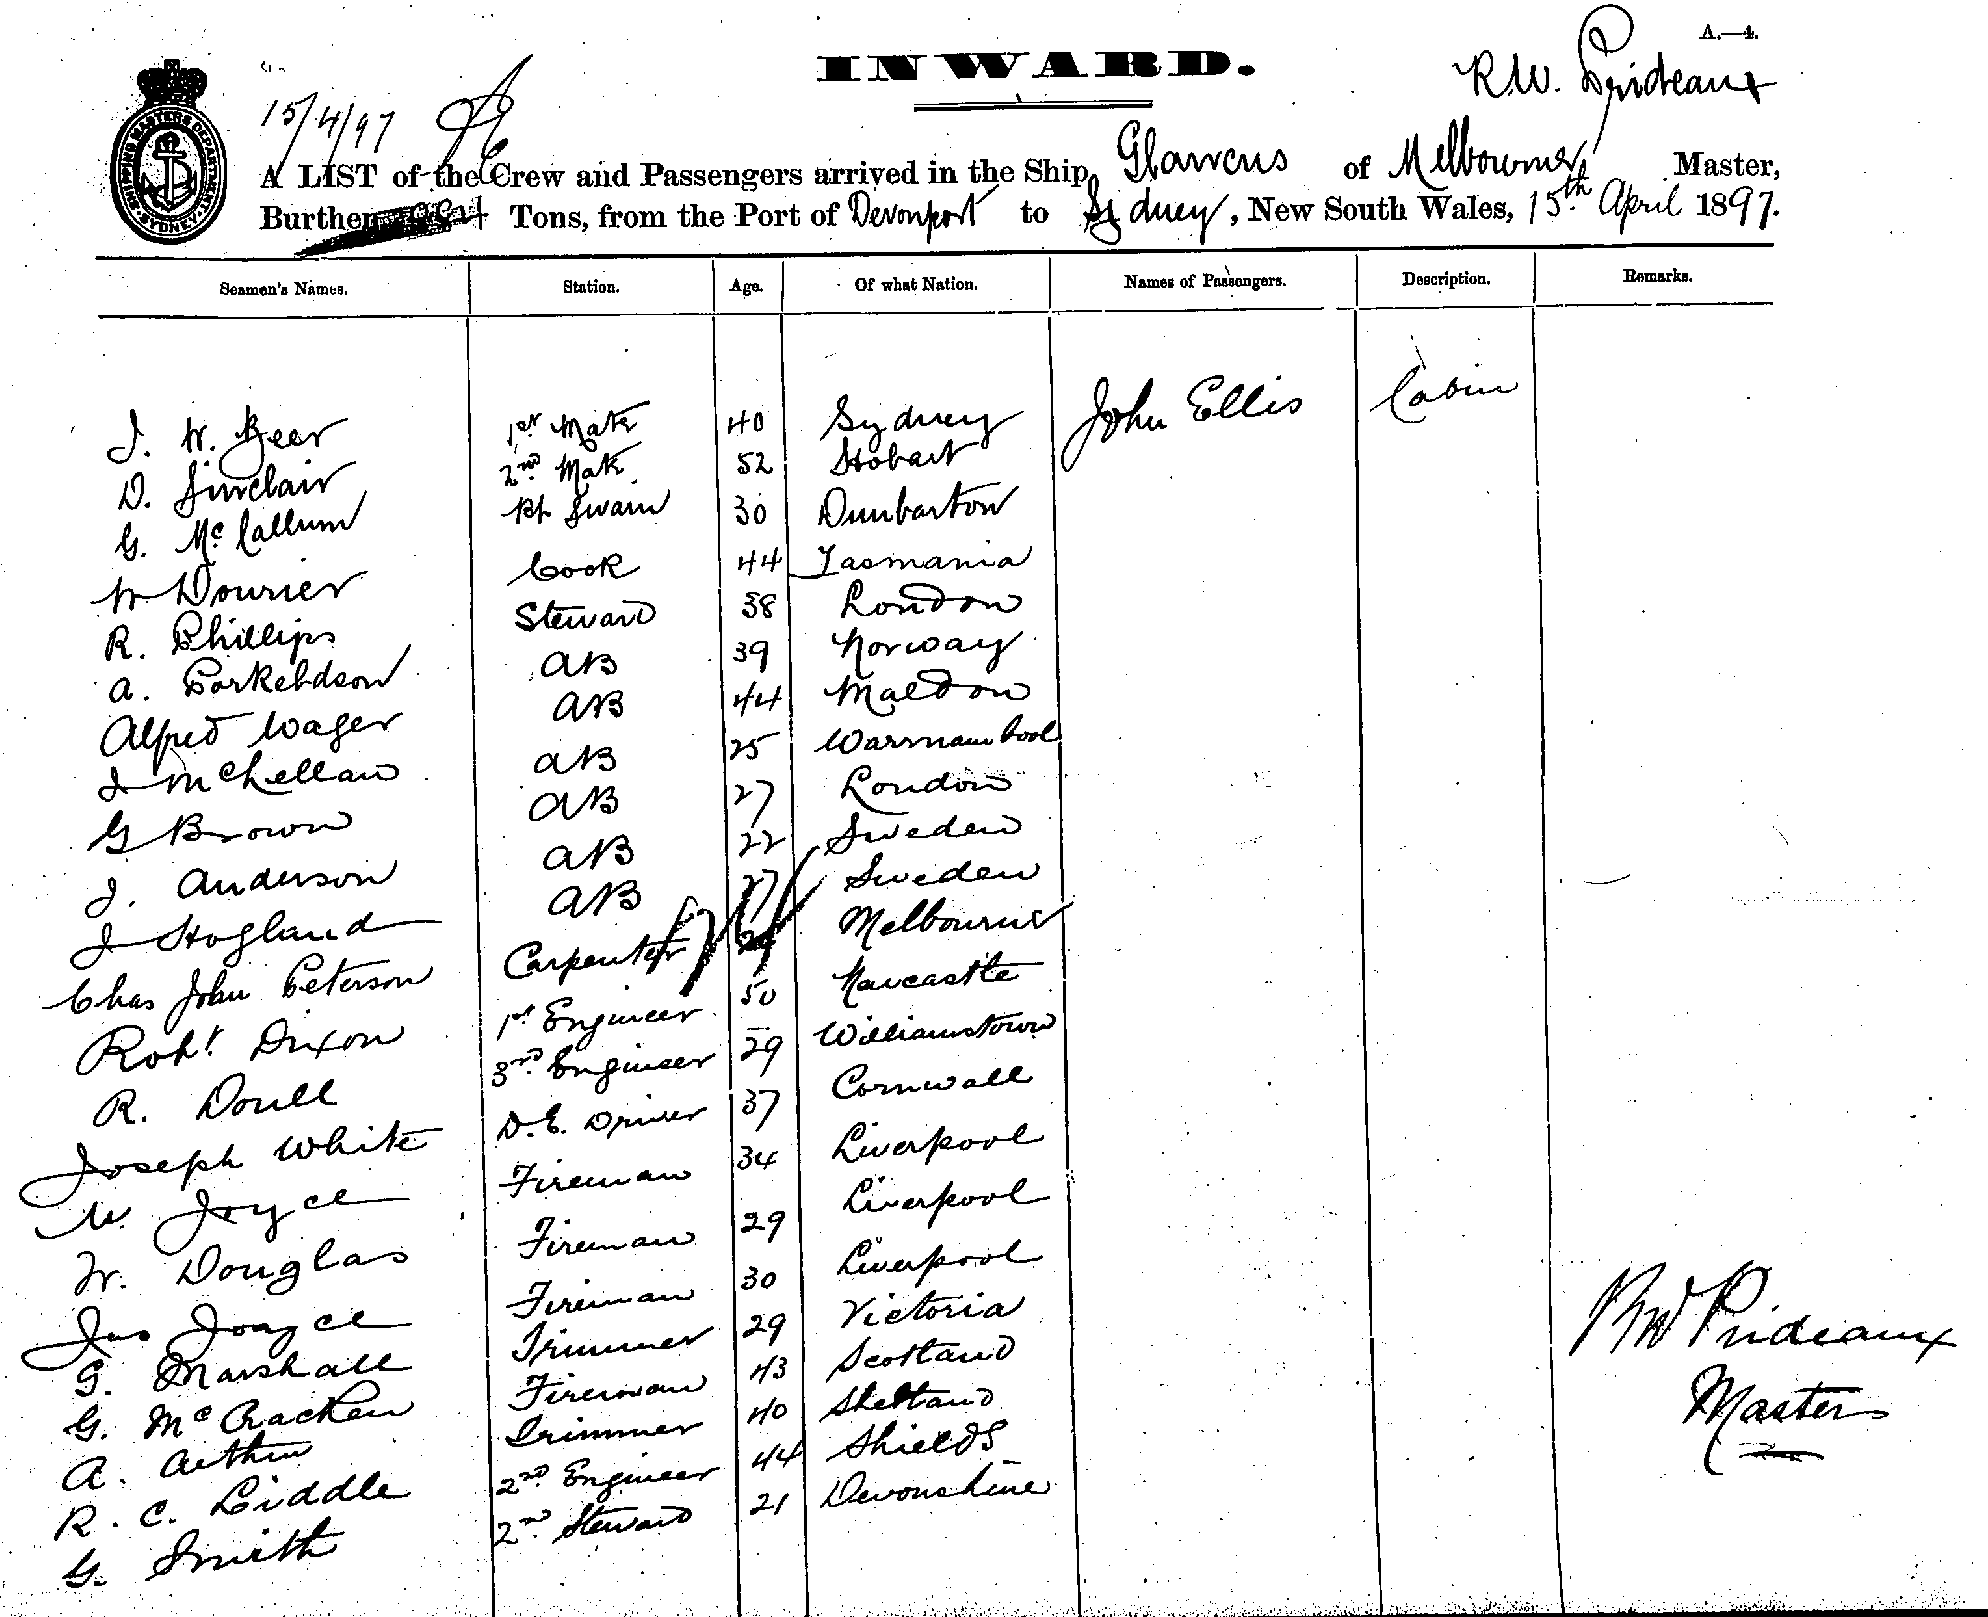 A.—4.
INWARD.
R.W. Prideaux
15/4/97
SHIPPING MASTERS DEPARTMENT SYDNEY
A LIST of the Crew and Passengers arrived in the Ship Glaucus of Melbourne, Master,
Burthen Tons, from the Port of Devonport to Sydney, New South Wales, 15th April 1897.
Seamen's Names. Station. Age. Of what Nation. Names of Passengers. Description. Remarks.
J. W. Beer 1st Mate 40 Sydney John Ellis Cabin
D. Sinclair 2nd Mate 52 Hobart
G. McCallum Bt Swain 30 Dunbarton
W Dourier Cook 44 Tasmania
R. Phillips Steward 38 London
A. Torkeldson AB 39 Norway
Alfred Wager AB 44 Maldon
J McLellan AB 25 Warrnambool
G Brown AB 27 London
J. Anderson AB 22 Sweden
J Hogland AB 27 Sweden
Chas John Peterson Carpenter Melbourne
Robt. Dixon 1st Engineer 50 Newcastle
R. Doull 3rd Engineer 29 Williamstown
Joseph White D.E. Driver 37 Cornwall
M. Joyce Fireman 34 Liverpool
W. Douglas Fireman 29 Liverpool
Jas Joyce Fireman 30 Liverpool
G. Marshall Trimmer 29 Victoria
G. McCracken Fireman 43 Scotland
A. Trimmer 40 Shetland
R. C. Liddle 2nd Engineer 44 Shields
G. Smith 2nd Steward 21 Devonshire
RW Prideaux
Master